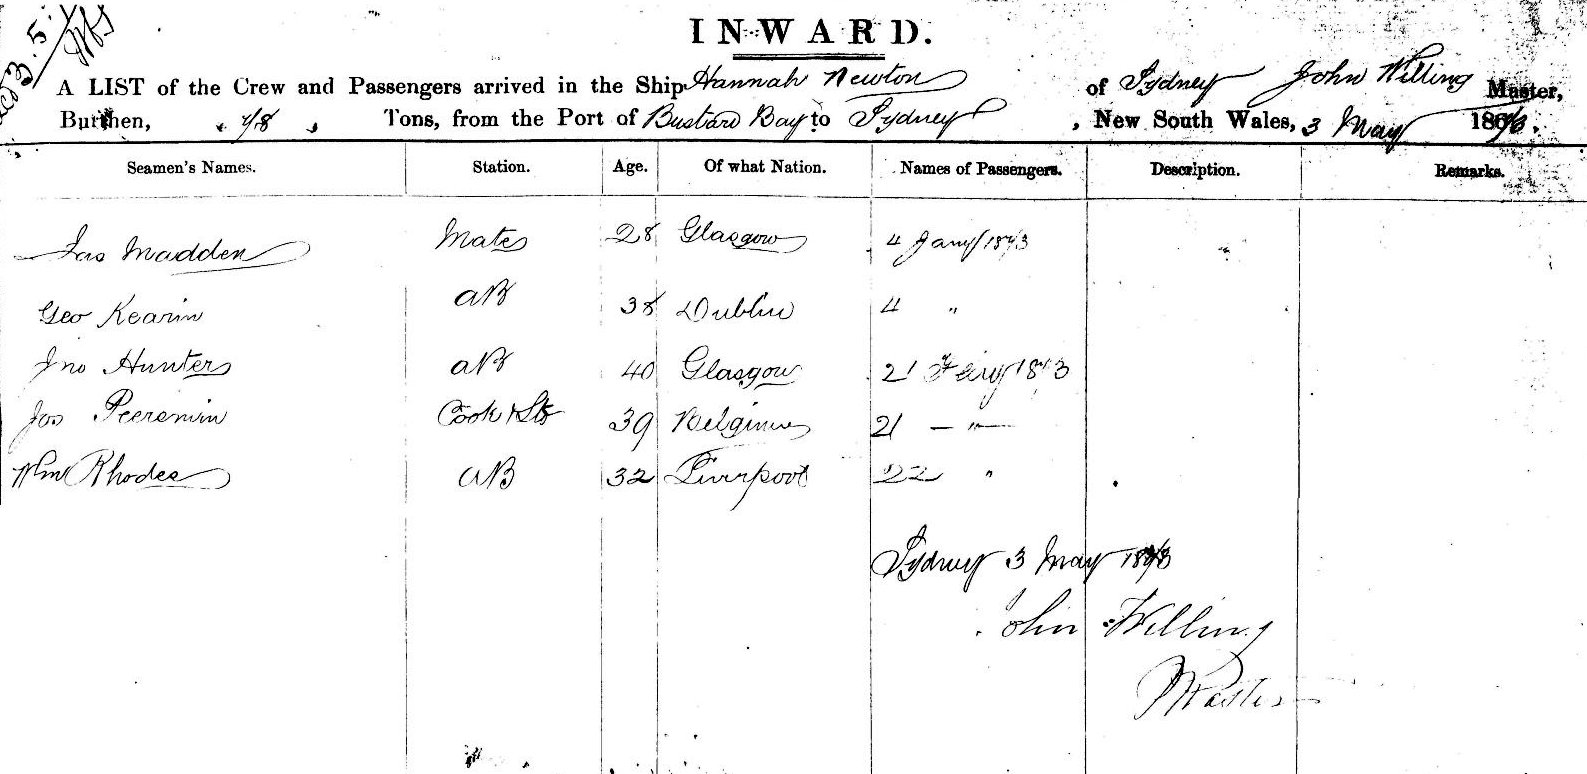 INWARD.
A LIST of the Crew and Passengers arrived in the Ship Hannah Newton of Sydney John Willing Master,
Burthen, 78 Tons, from the Port of Bustard Bay to Sydney, New South Wales, 3 May 1873.
Seamen's Names. Station. Age. Of what Nation. Names of Passengers. Description. Remarks.
Jas Madden Mate 28 Glasgow 4 Jany 1873
Geo Kearin AB 38 Dublin 4 "
Jno Hunter AB 40 Glasgow 21 1873
Jos Cook & Std 39 Belgium 21 — " —
Wm Rhodes AB 32 Liverpool 22 "
Sydney 3 May 1873
John Willing
Master